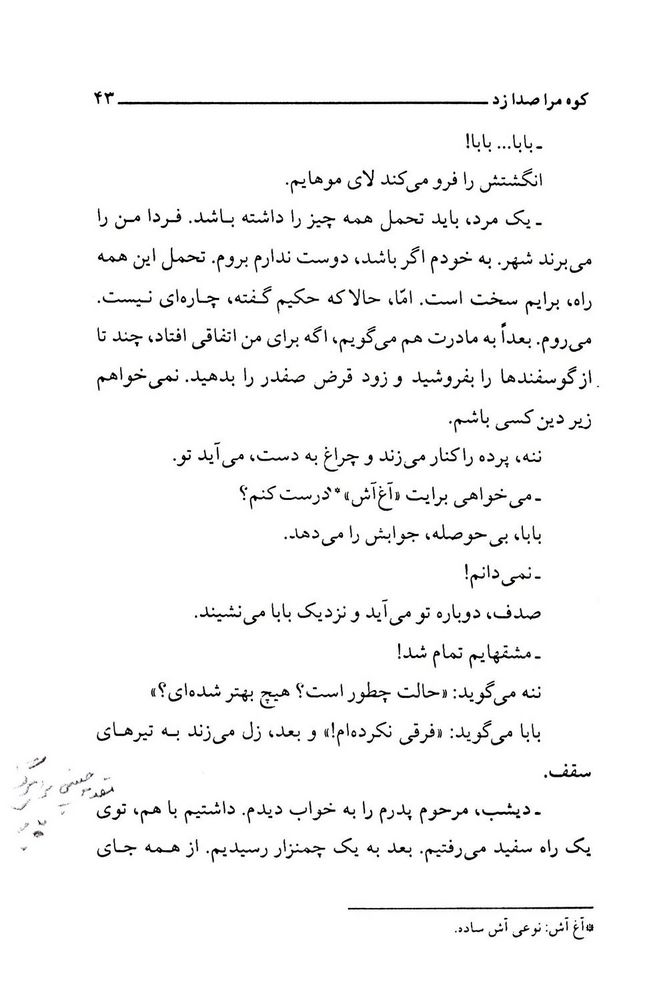 کوه مرا صدا زد ۴۳
ـ بابا... بابا!
انگشتش را فرو می‌کند لای موهایم.
ـ یک مرد، باید تحمل همه چیز را داشته باشد. فردا من را
می‌برند شهر. به خودم اگر باشد، دوست ندارم بروم. تحمل این همه
راه، برایم سخت است. امّا، حالا که حکیم گفته، چاره‌ای نیست.
می‌روم. بعداً به مادرت هم می‌گویم، اگه برای من اتفاقی افتاد، چند تا
از گوسفندها را بفروشید و زود قرض صفدر را بدهید. نمی‌خواهم
زیر دین کسی باشم.
ننه، پرده را کنار می‌زند و چراغ به دست، می‌آید تو.
ـ می‌خواهی برایت «آغ‌آش»* درست کنم؟
بابا، بی‌حوصله، جوابش را می‌دهد.
ـ نمی‌دانم!
صدف، دوباره تو می‌آید و نزدیک بابا می‌نشیند.
ـ مشقهایم تمام شد!
ننه می‌گوید: «حالت چطور است؟ هیچ بهتر شده‌ای؟»
بابا می‌گوید: «فرقی نکرده‌ام!» و بعد، زل می‌زند به تیرهای
سقف.
ـ دیشب، مرحوم پدرم را به خواب دیدم. داشتیم با هم، توی
یک راه سفید می‌رفتیم. بعد به یک چمنزار رسیدیم. از همه جای
*آغ آش: نوعی آش ساده.